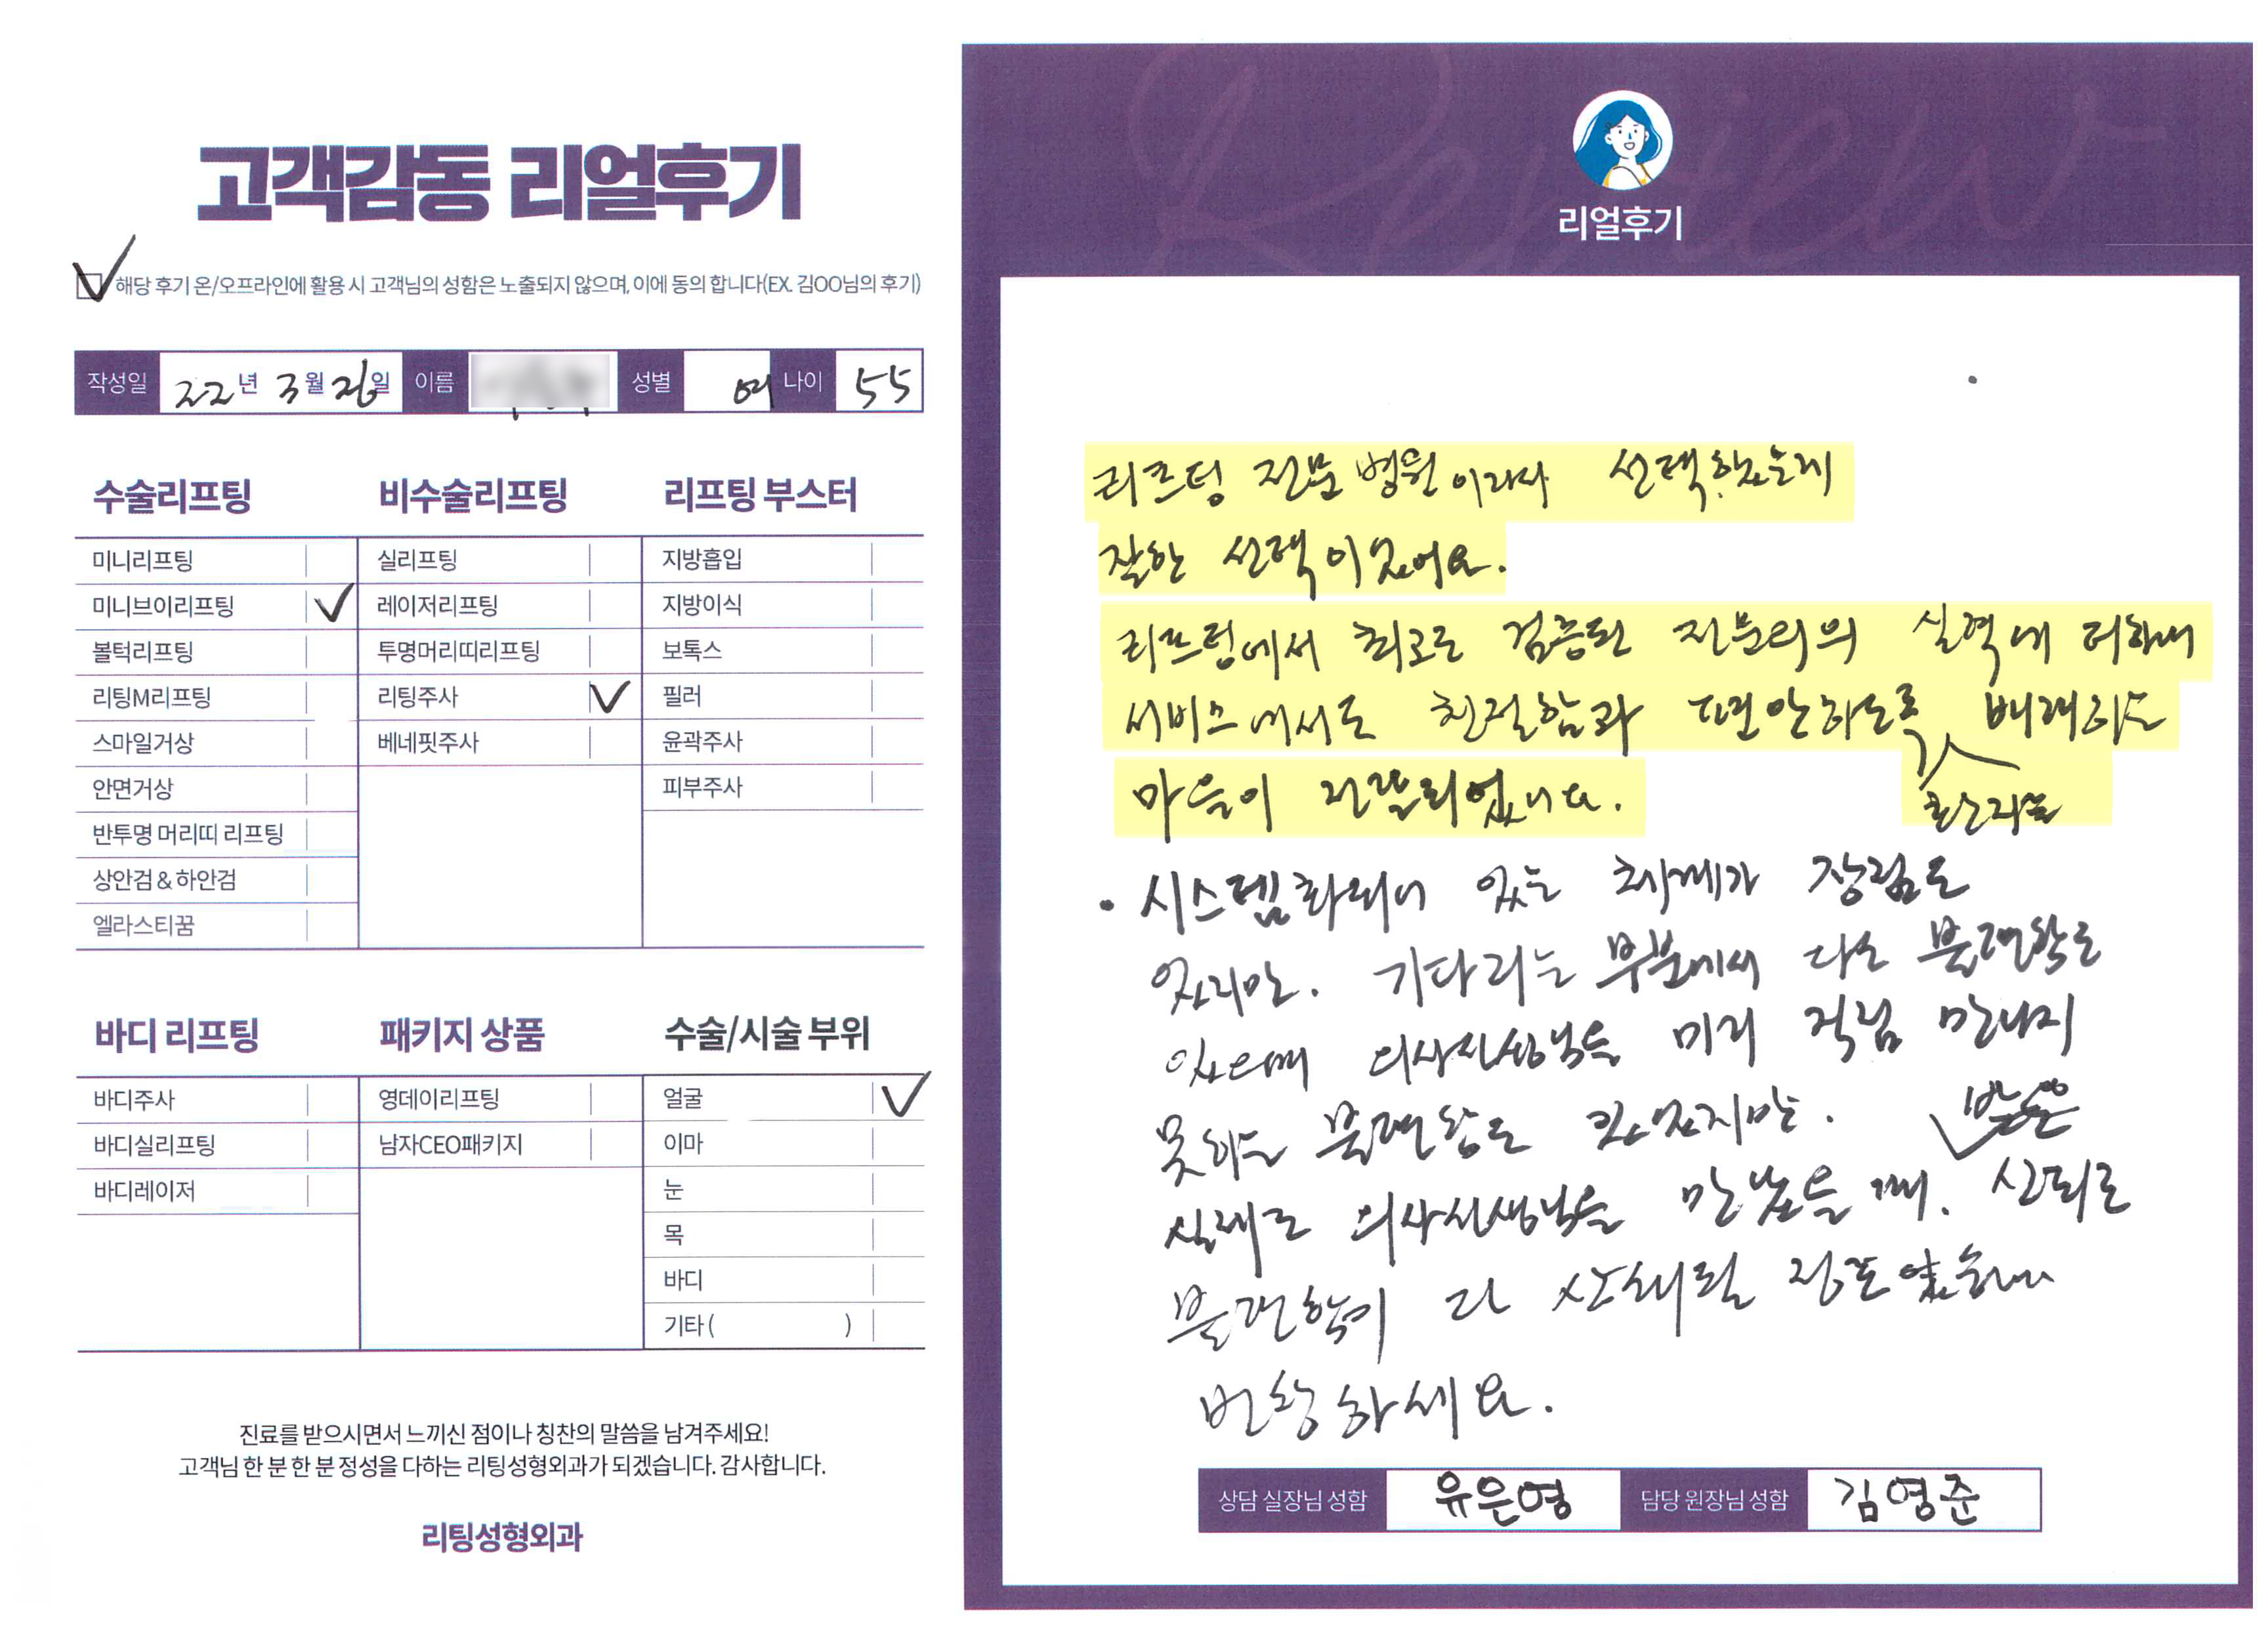 고객감동 리얼후기
해당 후기 온/오프라인에 활용 시 고객님의 성함은 노출되지 않으며, 이에 동의 합니다(EX. 김OO님의 후기)
작성일 22년 3월 26일 이름 성별 여 나이 55
수술리프팅 비수술리프팅 리프팅 부스터
미니리프팅 실리프팅 지방흡입
미니브이리프팅 레이저리프팅 지방이식
볼턱리프팅 투명머리띠리프팅 보톡스
리팅M리프팅 리팅주사 필러
스마일거상 베네핏주사 윤곽주사
안면거상 피부주사
반투명 머리띠 리프팅
상안검 & 하안검
엘라스티꿈
바디 리프팅 패키지 상품 수술/시술 부위
바디주사 영데이리프팅 얼굴
바디실리프팅 남자CEO패키지 이마
바디레이저 눈
목
바디
기타( )
진료를 받으시면서 느끼신 점이나 칭찬의 말씀을 남겨주세요!
고객님 한 분 한 분 정성을 다하는 리팅성형외과가 되겠습니다. 감사합니다.
리팅성형외과
Review
리얼후기
리프팅 전문 병원이라서 선택했는데
잘한 선택이었어요.
리프팅에서 최고로 검증된 전문의의 실력에 더하여
서비스에서도 친절함과 편안하도록 배려하는
환자를
마음이 전달되었어요.
시스템화되어 있는 체계가 장점도
있지만. 기다리는 부분에서 다소 불편함도
있으며 의사선생님을 미리 직접 만나지
못하는 불편함도 있었지만.
실제로 의사선생님을 만났을 때. 신뢰로
불편함이 다 상쇄될 정도였습니다
번창하세요.
상담 실장님 성함 유은영 담당 원장님 성함 김영준